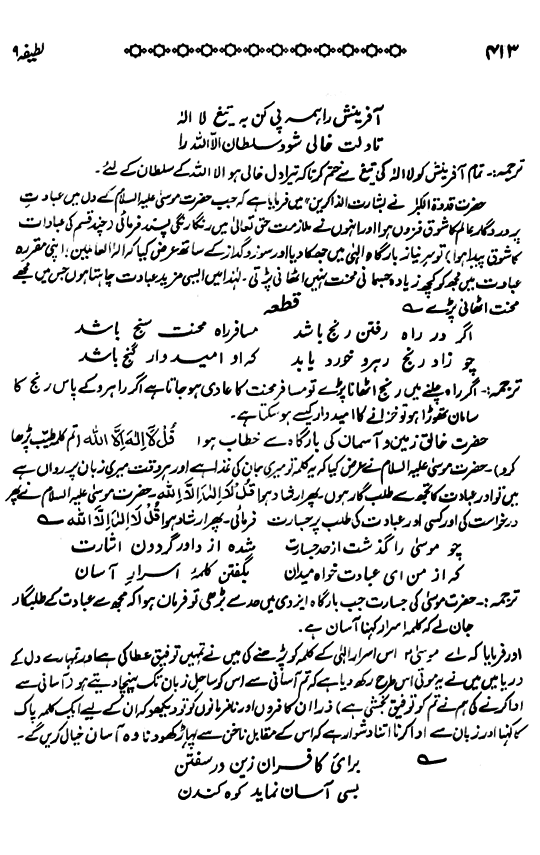 ۴۱۳ لطیفہ ۹
آفرینش را ہمہ پی کن بہ تیغ لا الہ
تا دلت خالی شود سلطان الا اللہ را
ترجمہ:۔ تمام آفرینش کو لا الہ کی تیغ سے ختم کر تاکہ تیرا دل خالی ہو الا اللہ کے سلطان کے لئے۔
حضرت قدوۃ الکبرٰ نے بشارت الذاکرین میں فرمایا ہے کہ جب حضرت موسیٰ علیہ السلام کے دل میں عبادتِ
پروردگارِ عالم کا شوق فزوں ہوا اور انہوں نے ملازمت حق تعالیٰ میں رنگا رنگی پسند فرمائی (چند قسم کی عبادات
کا شوق پیدا ہوا) تو سرِ نیاز بارگاہِ الٰہی میں جھکا دیا اور سوز و گداز کے ساتھ عرض کیا کہ الٰہ العالمین! اپنی مقررہ
عبادت میں مجھ کو کچھ زیادہ جسمانی محنت نہیں اٹھانی پڑتی۔ لہٰذا میں ایسی مزید عبادت چاہتا ہوں جس میں مجھے
محنت اٹھانی پڑے ؎ قطعہ
اگر در راہ رفتن رنج باشد مسافر راہ محنت سنج باشد
چو زاد رنج رہرو خورد یابد کہ او امیددار گنج باشد
ترجمہ:۔ اگر راہ چلنے میں رنج اٹھانا پڑے تو مسافر محنت کا عادی ہو جاتا ہے اگر راہرو کے پاس رنج کا
سامان تھوڑا ہو تو خزانے کا امیدوار کیسے ہو سکتا ہے۔
حضرت خالق زمین و آسمان کی بارگاہ سے خطاب ہوا قُلْ لَا إِلٰهَ إِلَّا اللّٰه (تم کلمہ طیّب پڑھا
کرو)۔ حضرت موسیٰ علیہ السلام نے عرض کیا کہ یہ کلمہ تو میری جان کی غذا ہے اور ہر وقت میری زبان پر رواں ہے
میں نوادر عبادت کا تجھ سے طلبگار ہوں۔ پھر ارشاد ہوا قُلْ لَا إِلٰهَ إِلَّا اللّٰه۔ حضرت موسیٰ علیہ السلام نے پھر
درخواست کی اور کسی اور عبادت کی طلب پر جسارت فرمائی۔ پھر ارشاد ہوا قُلْ لَا إِلٰهَ إِلَّا اللّٰه ؎
چو موسیٰ را گذشت از حد جسارت شدہ از داور گردون اشارت
کہ از من ای عبادت خواہ میدان بگفتن کلمۂ اسرارِ آسان
ترجمہ:۔ حضرت موسیٰ کی جسارت جب بارگاہ ایزدی میں حد سے بڑھی تو فرمان ہوا کہ مجھ سے عبادت کے طلبگار
جان لے کہ کلمہ اسرار کہنا آسان ہے۔
اور فرمایا کہ اے موسیٰ اس اسرارِ الٰہی کے کلمہ کو پڑھنے کی میں نے تمہیں توفیق عطا کی ہے اور تمہارے دل کے
دریا میں میں نے یہ موتی اس طرح رکھ دیا ہے کہ تم آسانی سے اس کو ساحلِ زبان تک پہنچا دیتے ہو (آسانی سے
ادا کرنے کی ہم نے تم کو توفیق بخشی ہے) ذرا ان کافروں اور نافرمانوں کو تو دیکھو کہ ان کے لیے ایک کلمہ پاک
کا کہنا اور زبان سے ادا کرنا اتنا دشوار ہے کہ اس کے مقابل ناخن سے پہاڑ کھودنا وہ آسان خیال کریں گے۔
؎ برائ کافران زین در سفتن
بسی آسان نماید کوہ کندن